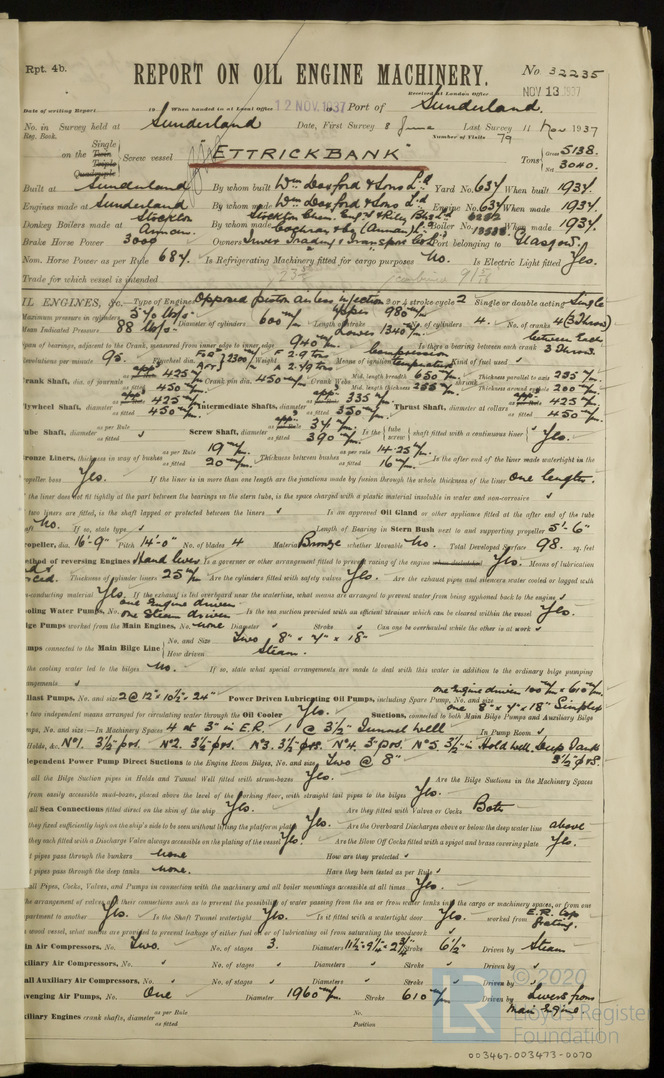 Rpt. 4b.
REPORT ON OIL ENGINE MACHINERY.
No. 32235
Received at London Office NOV 13 1937
Date of writing Report 19 When handed in at Local Office 12 NOV. 1937 Port of Sunderland.
No. in Survey held at Sunderland Date, First Survey 8 June Last Survey 11 Nov 1937
Reg. Book. Number of Visits 79
on the Single Twin Triple Quadruple Screw vessel "ETTRICKBANK" Tons Gross 5138. Net 3040.
Built at Sunderland By whom built Wm Doxford & Sons Ltd Yard No. 634 When built 1937.
Engines made at Sunderland By whom made Wm Doxford & Sons Ltd Engine No. 634 When made 1937.
Donkey Boilers made at Stockton Annan. By whom made Boiler No. When made 1937.
Brake Horse Power 3000 Owners Port belonging to Glasgow.
Nom. Horse Power as per Rule 684. Is Refrigerating Machinery fitted for cargo purposes No. Is Electric Light fitted Yes.
Trade for which vessel is intended
IL ENGINES, &c. Type of Engines Opposed piston airless injection 2 or 4 stroke cycle 2 Single or double acting Single
Maximum pressure in cylinders 570 lbs/" Diameter of cylinders 600 m/m Length of stroke Upper 980 m/m Lower 1340 m/m No. of cylinders 4. No. of cranks 4 (3 throw)
Mean Indicated Pressure 88 lbs/"
pan of bearings, adjacent to the Crank, measured from inner edge to inner edge 940 m/m Is there a bearing between each crank between each 3 throw.
Revolutions per minute 95. Flywheel dia. 2300 m/m Weight Means of ignition Compression temperature Kind of fuel used
Crank Shaft, dia. of journals as per Rule app. 425 m/m as fitted 450 m/m Crank pin dia. 450 m/m Crank Webs Mid. length breadth 650 m/m Mid. length thickness shrunk Thickness parallel to axis 255 m/m Thickness around eyehole 200 m/m
Flywheel Shaft, diameter as per Rule app. 425 m/m as fitted 450 m/m Intermediate Shafts, diameter as per Rule app. 335 m/m as fitted 350 m/m Thrust Shaft, diameter at collars as per Rule app. 425 m/m as fitted 450 m/m
Tube Shaft, diameter as per Rule as fitted Screw Shaft, diameter as fitted 390 m/m Is the tube screw shaft fitted with a continuous liner Yes.
Bronze Liners, thickness in way of bushes as per Rule 19 m/m as fitted 20 m/m Thickness between bushes as per rule 14.25 m/m as fitted 16 m/m Is the after end of the liner made watertight in the
propeller boss Yes. If the liner is in more than one length are the junctions made by fusion through the whole thickness of the liner One length.
the liner does not fit tightly at the part between the bearings in the stern tube, is the space charged with a plastic material insoluble in water and non-corrosive
two liners are fitted, is the shaft lapped or protected between the liners Is an approved Oil Gland or other appliance fitted at the after end of the tube
shaft No. If so, state type Length of Bearing in Stern Bush next to and supporting propeller 5'-6"
ropeller, dia. 16'-9" Pitch 14'-0" No. of blades 4 Material Bronze whether Moveable No. Total Developed Surface 98. sq. feet
ethod of reversing Engines Hand lever Is a governor or other arrangement fitted to prevent racing of the engine when declutched Yes. Means of lubrication
Thickness of cylinder liners 25 m/m Are the cylinders fitted with safety valves Yes. Are the exhaust pipes and silencers water cooled or lagged with
n-conducting material Yes. If the exhaust is led overboard near the waterline, what means are arranged to prevent water being syphoned back to the engine
oling Water Pumps, No. one Engine driven one Steam driven Is the sea suction provided with an efficient strainer which can be cleared within the vessel Yes.
lge Pumps worked from the Main Engines, No. None Diameter Stroke Can one be overhauled while the other is at work
umps connected to the Main Bilge Line No. and Size Two 8" x 7" x 18" How driven Steam.
the cooling water led to the bilges No. If so, state what special arrangements are made to deal with this water in addition to the ordinary bilge pumping
angements
llast Pumps, No. and size 2 @ 12" x 10½" x 24" Power Driven Lubricating Oil Pumps, including Spare Pump, No. and size one Engine driven 100 m/m x 610 m/m. one 8" x 7" x 18" Simplex
two independent means arranged for circulating water through the Oil Cooler Yes. Suctions, connected to both Main Bilge Pumps and Auxiliary Bilge
mps, No. and size:—In Machinery Spaces 4 at 3" in E.R. 1 @ 3½" Tunnel Well In Pump Room
Holds, &c. No 1. 3½" prs. No 2. 3½" prs. No 3. 3½" prs. No 4. 3" prs. No 5. 3½" in Hold Well. Deep Tanks 3½" prs.
dependent Power Pump Direct Suctions to the Engine Room Bilges, No. and size Two @ 8"
all the Bilge Suction pipes in Holds and Tunnel Well fitted with strum-boxes Yes. Are the Bilge Suctions in the Machinery Spaces
from easily accessible mud-boxes, placed above the level of the working floor, with straight tail pipes to the bilges Yes.
all Sea Connections fitted direct on the skin of the ship Yes. Are they fitted with Valves or Cocks Both
they fixed sufficiently high on the ship's side to be seen without lifting the platform plates Yes. Are the Overboard Discharges above or below the deep water line above
they each fitted with a Discharge Valve always accessible on the plating of the vessel Yes. Are the Blow Off Cocks fitted with a spigot and brass covering plate Yes.
t pipes pass through the bunkers None How are they protected
t pipes pass through the deep tanks None. Have they been tested as per Rule
all Pipes, Cocks, Valves, and Pumps in connection with the machinery and all boiler mountings accessible at all times Yes.
he arrangement of valves and their connections such as to prevent the possibility of water passing from the sea or from water tanks in the cargo or machinery spaces, or from one
partment to another Yes. Is the Shaft Tunnel watertight Yes. Is it fitted with a watertight door Yes. worked from E.R. top grating.
wood vessel, what means are provided to prevent leakage of either fuel oil or lubricating oil from saturating the woodwork
in Air Compressors, No. Two. No. of stages 3. Diameters 11½-9¼-2¾" Stroke 6½" Driven by Steam
xiliary Air Compressors, No. No. of stages Diameters Stroke Driven by
all Auxiliary Air Compressors, No. No. of stages Diameters Stroke Driven by
avenging Air Pumps, No. One Diameter 1960 m/m Stroke 610 m/m Driven by Levers from Main Engine
xiliary Engines crank shafts, diameter as per Rule as fitted No. Position
© 2020
LR
Lloyd's Register
Foundation
003467-003473-0070